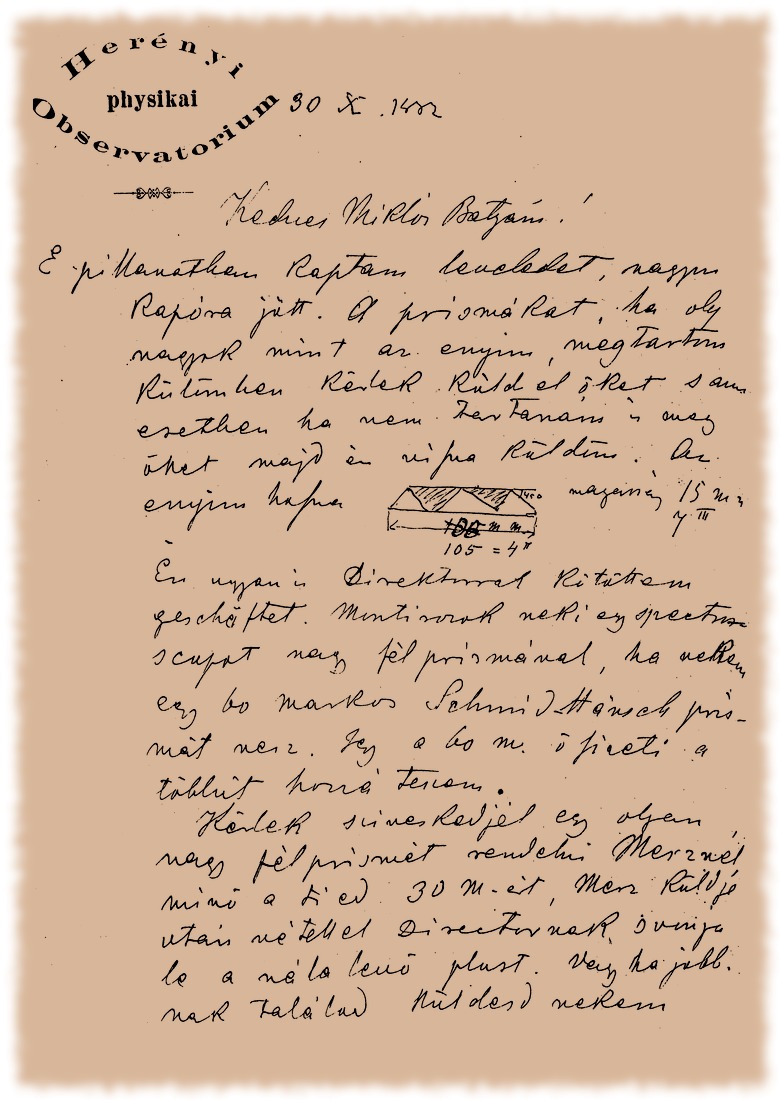 Herényi
physikai
Observatorium
30 X. 1882
Kedves Miklós Bátyám!
E pillanatban kaptam leveledet, nagyon
kapóra jött. A prismákat, ha oly
nagyok mint az enyim, megtartom
Külömben kérlek küld el őket
esetben ha nem tartanám is meg
őket majd én küldöm. Az
enyim
105 = 4"
15 m
Én ugyanis Direktorral kötöttem
geschäftet. Montirozok neki egy spectro-
scopot nagy fél prismával, ha nekem
egy 60 markos Schmid-Hänsch pris-
mát vesz. Így a 60 m. ő fizeti a
többit hozzá teszem.
Kérlek sziveskedjél egy olyan
nagy fél prismát rendelni Merznél
minő a tied 30 M-ért, Merz küldje
után vétellel Directornak,
le a nála levő plust. Vagy ha jobb-
nak találod küldesd nekem